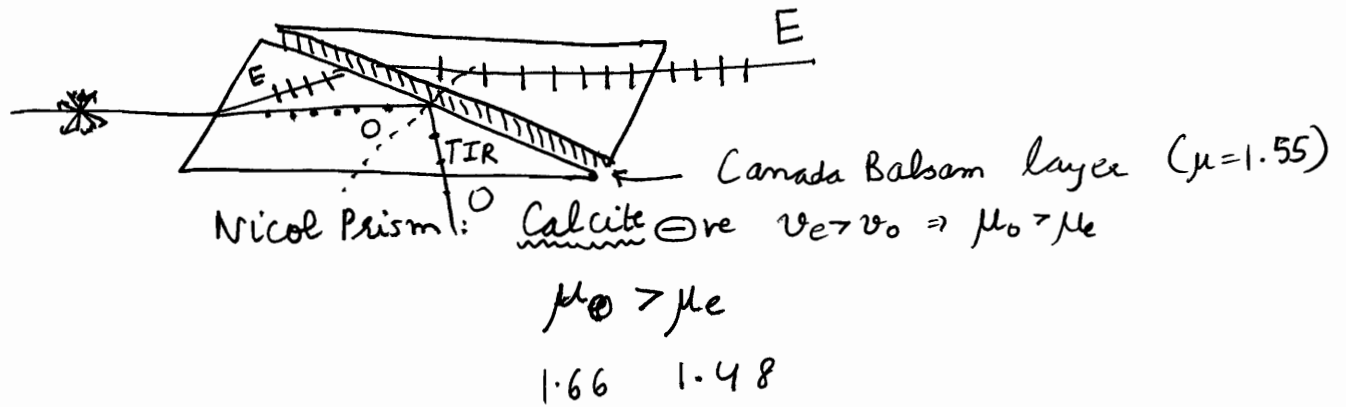 E
E
O
TIR
O
Canada Balsam layer (μ=1.55)
Nicol Prism: Calcite ⊖ve v_e > v_o ⇒ μ_o > μ_e
μ_o > μ_e
1.66 1.48